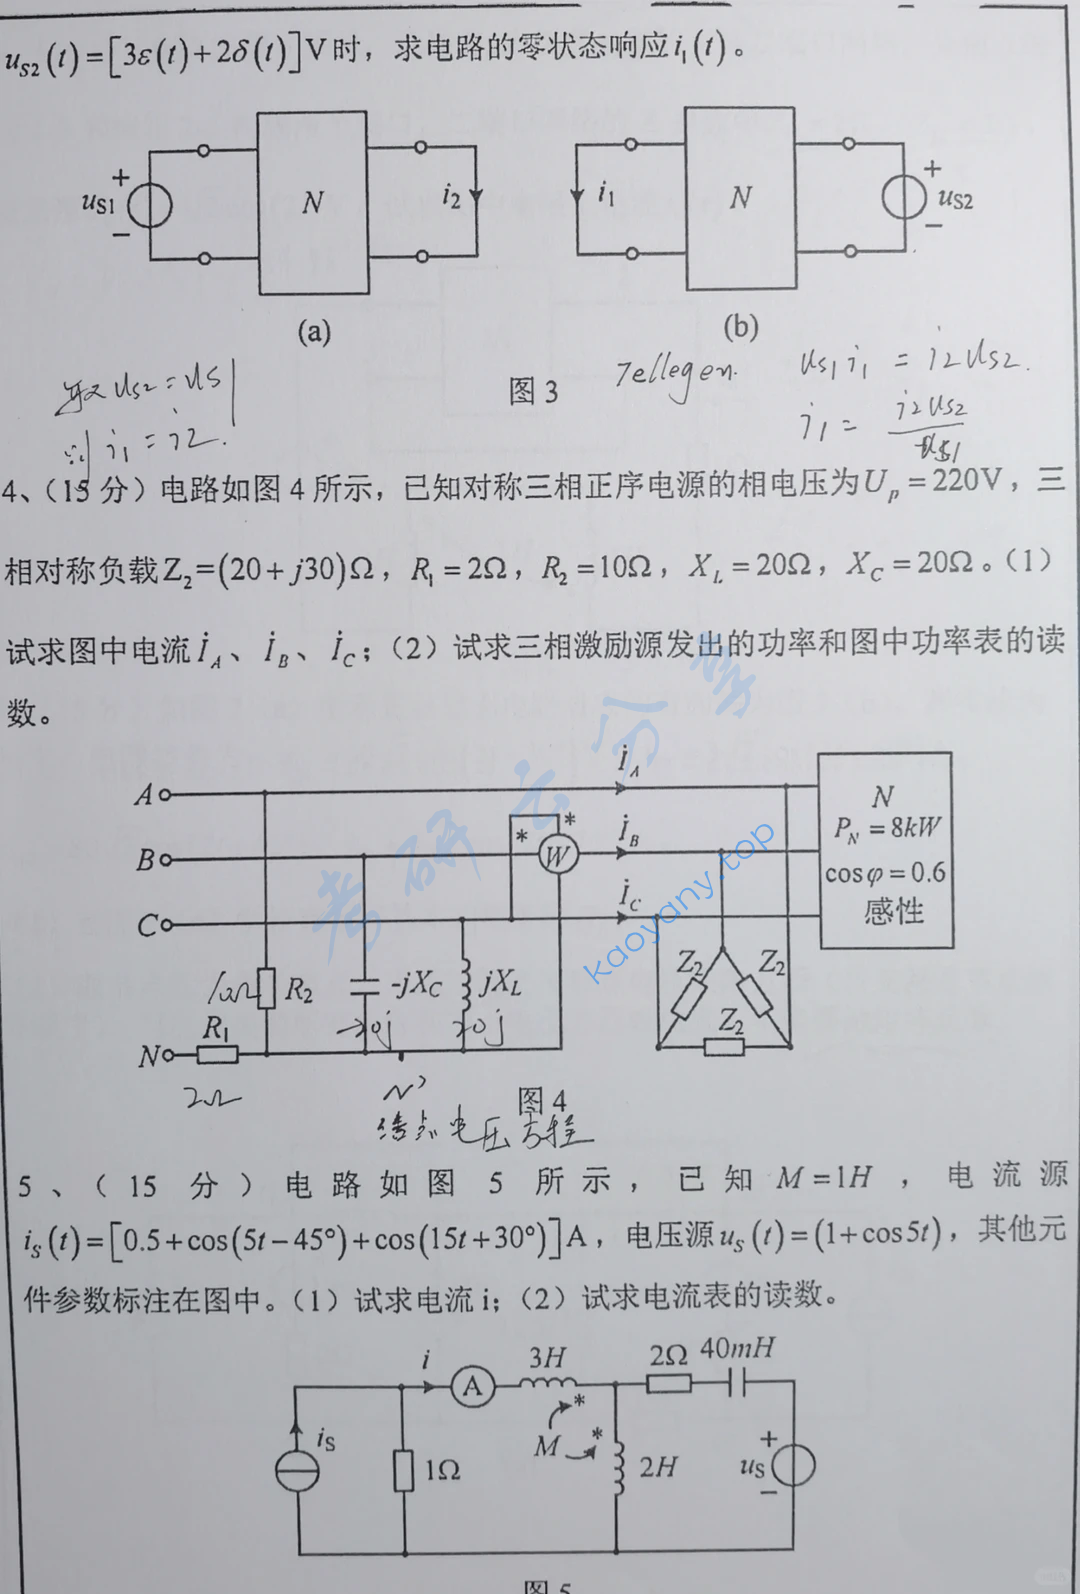 u_{S2}(t)=[3ε(t)+2δ(t)]V时，求电路的零状态响应i₁(t)。
+ u_{S1} − N i₂ i₁ N + u_{S2} −
(a) (b)
取 u_{S2}=u_{S1}
则 i₁=i₂.
图3
Tellegen. u_{S1}i₁ = i₂u_{S2}.
i₁ = i₂u_{S2}/u_{S1}
4、（15分）电路如图4所示，已知对称三相正序电源的相电压为U_p=220V，三
相对称负载Z₂=(20+j30)Ω，R₁=2Ω，R₂=10Ω，X_L=20Ω，X_C=20Ω。（1）
试求图中电流İ_A、İ_B、İ_C；（2）试求三相激励源发出的功率和图中功率表的读
数。
A İ_A
B * * W İ_B
C İ_C
N
P_N=8kW
cosφ=0.6
感性
10Ω R₂ -jX_C jX_L
-20j 20j
Z₂ Z₂ Z₂
R₁
N
2Ω
N'
图4
结点电压方程
5、（15分）电路如图5所示，已知M=1H，电流源
i_S(t)=[0.5+cos(5t−45°)+cos(15t+30°)]A，电压源u_S(t)=(1+cos5t)，其他元
件参数标注在图中。（1）试求电流i；（2）试求电流表的读数。
i A 3H 2Ω 40mH
* *
M
i_S 1Ω 2H + u_S −
图5
考研云分享
kaoyany.top